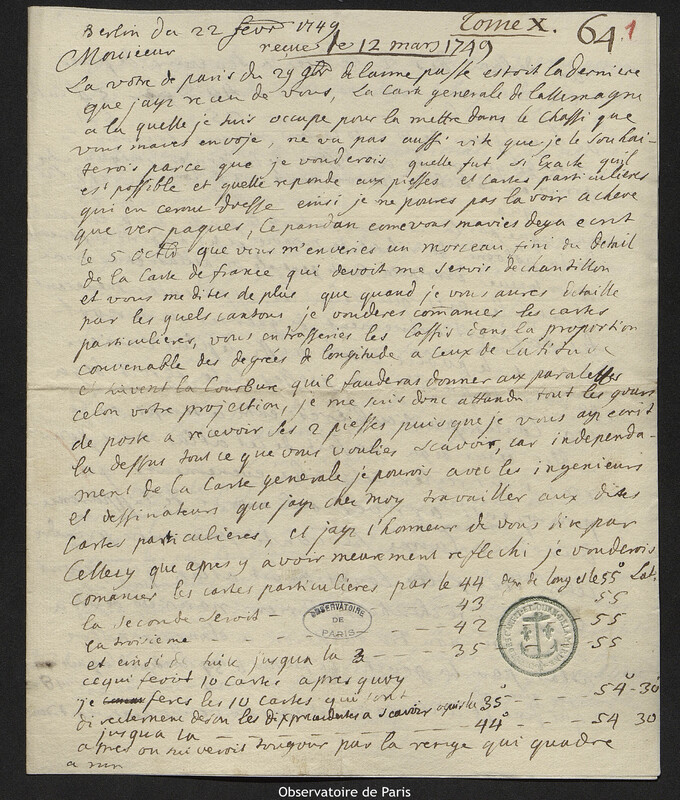 Berlin du 22 fevr 1749
Tome X.
64
1
Monsieur
reçue le 12 mars 1749
La votre de paris du 29 9bre de lanne passe estoit la derniere
que jaye receu de vous, La Carte generale de lallemagne
a la quelle je suis occupe pour la mettre dans le Chassi que
vous maves envoje, ne va pas aussi vite que je le souhai-
terois parce que je vouderois quelle fut si Exacte quil
est possible et quelle reponde aux piesses et cartes particulieres
qui en seront dresse einsi je ne poures pas la voir acheve
que ver paques, Ce pandan come vous mavies deya ecrit
le 5 octb que vous m'enveries un morceau fini du detail
de la Carte de france qui devoit me servir dechantillon
et vous me dites de plus, que quand je vous aures Detaille
par les quels cantons je vonderes comancer les cartes
particulieres, vous en trasseries les Cassis dans la proportion
convenable des degrées de longitude a ceux de Latitude
et suivent la Courbure quil fauderas donner aux paralelles
celon votre projection, je me suis donc attandu tout les yours
de poste a recevoir ses 2 piesses puisque je vous aye ecrit
la dessus tout ce que vous voulies scavoir, car independa-
ment de la Carte generale je pourois avec les ingenieurs
et dessinateurs que jaye chez moy travailler aux dites
Cartes particulieres, et jaye l'honneur de vous dire par
Cellecy que apres y avoir meurement reflechi je vouderois
comancer les cartes particulieres par le 44 de longit le 55° Lat.
la seconde seroit - - - 43 - - - 55
la troisieme - - - 42 - - - 55
et einsi de suite jusqua la - - - 35 - - - 55
ce qui feroit 10 Cartes apres quoy
je feres les 10 cartes qui sont
directement desou les dix precedentes a scavoir depuis le 35° - - - 54° - 30
jusqua la - - - 44° - - - 54 30
apres on suiveroit tougour par la renge qui quadre
OBSERVATOIRE
DE
PARIS
Observatoire de Paris